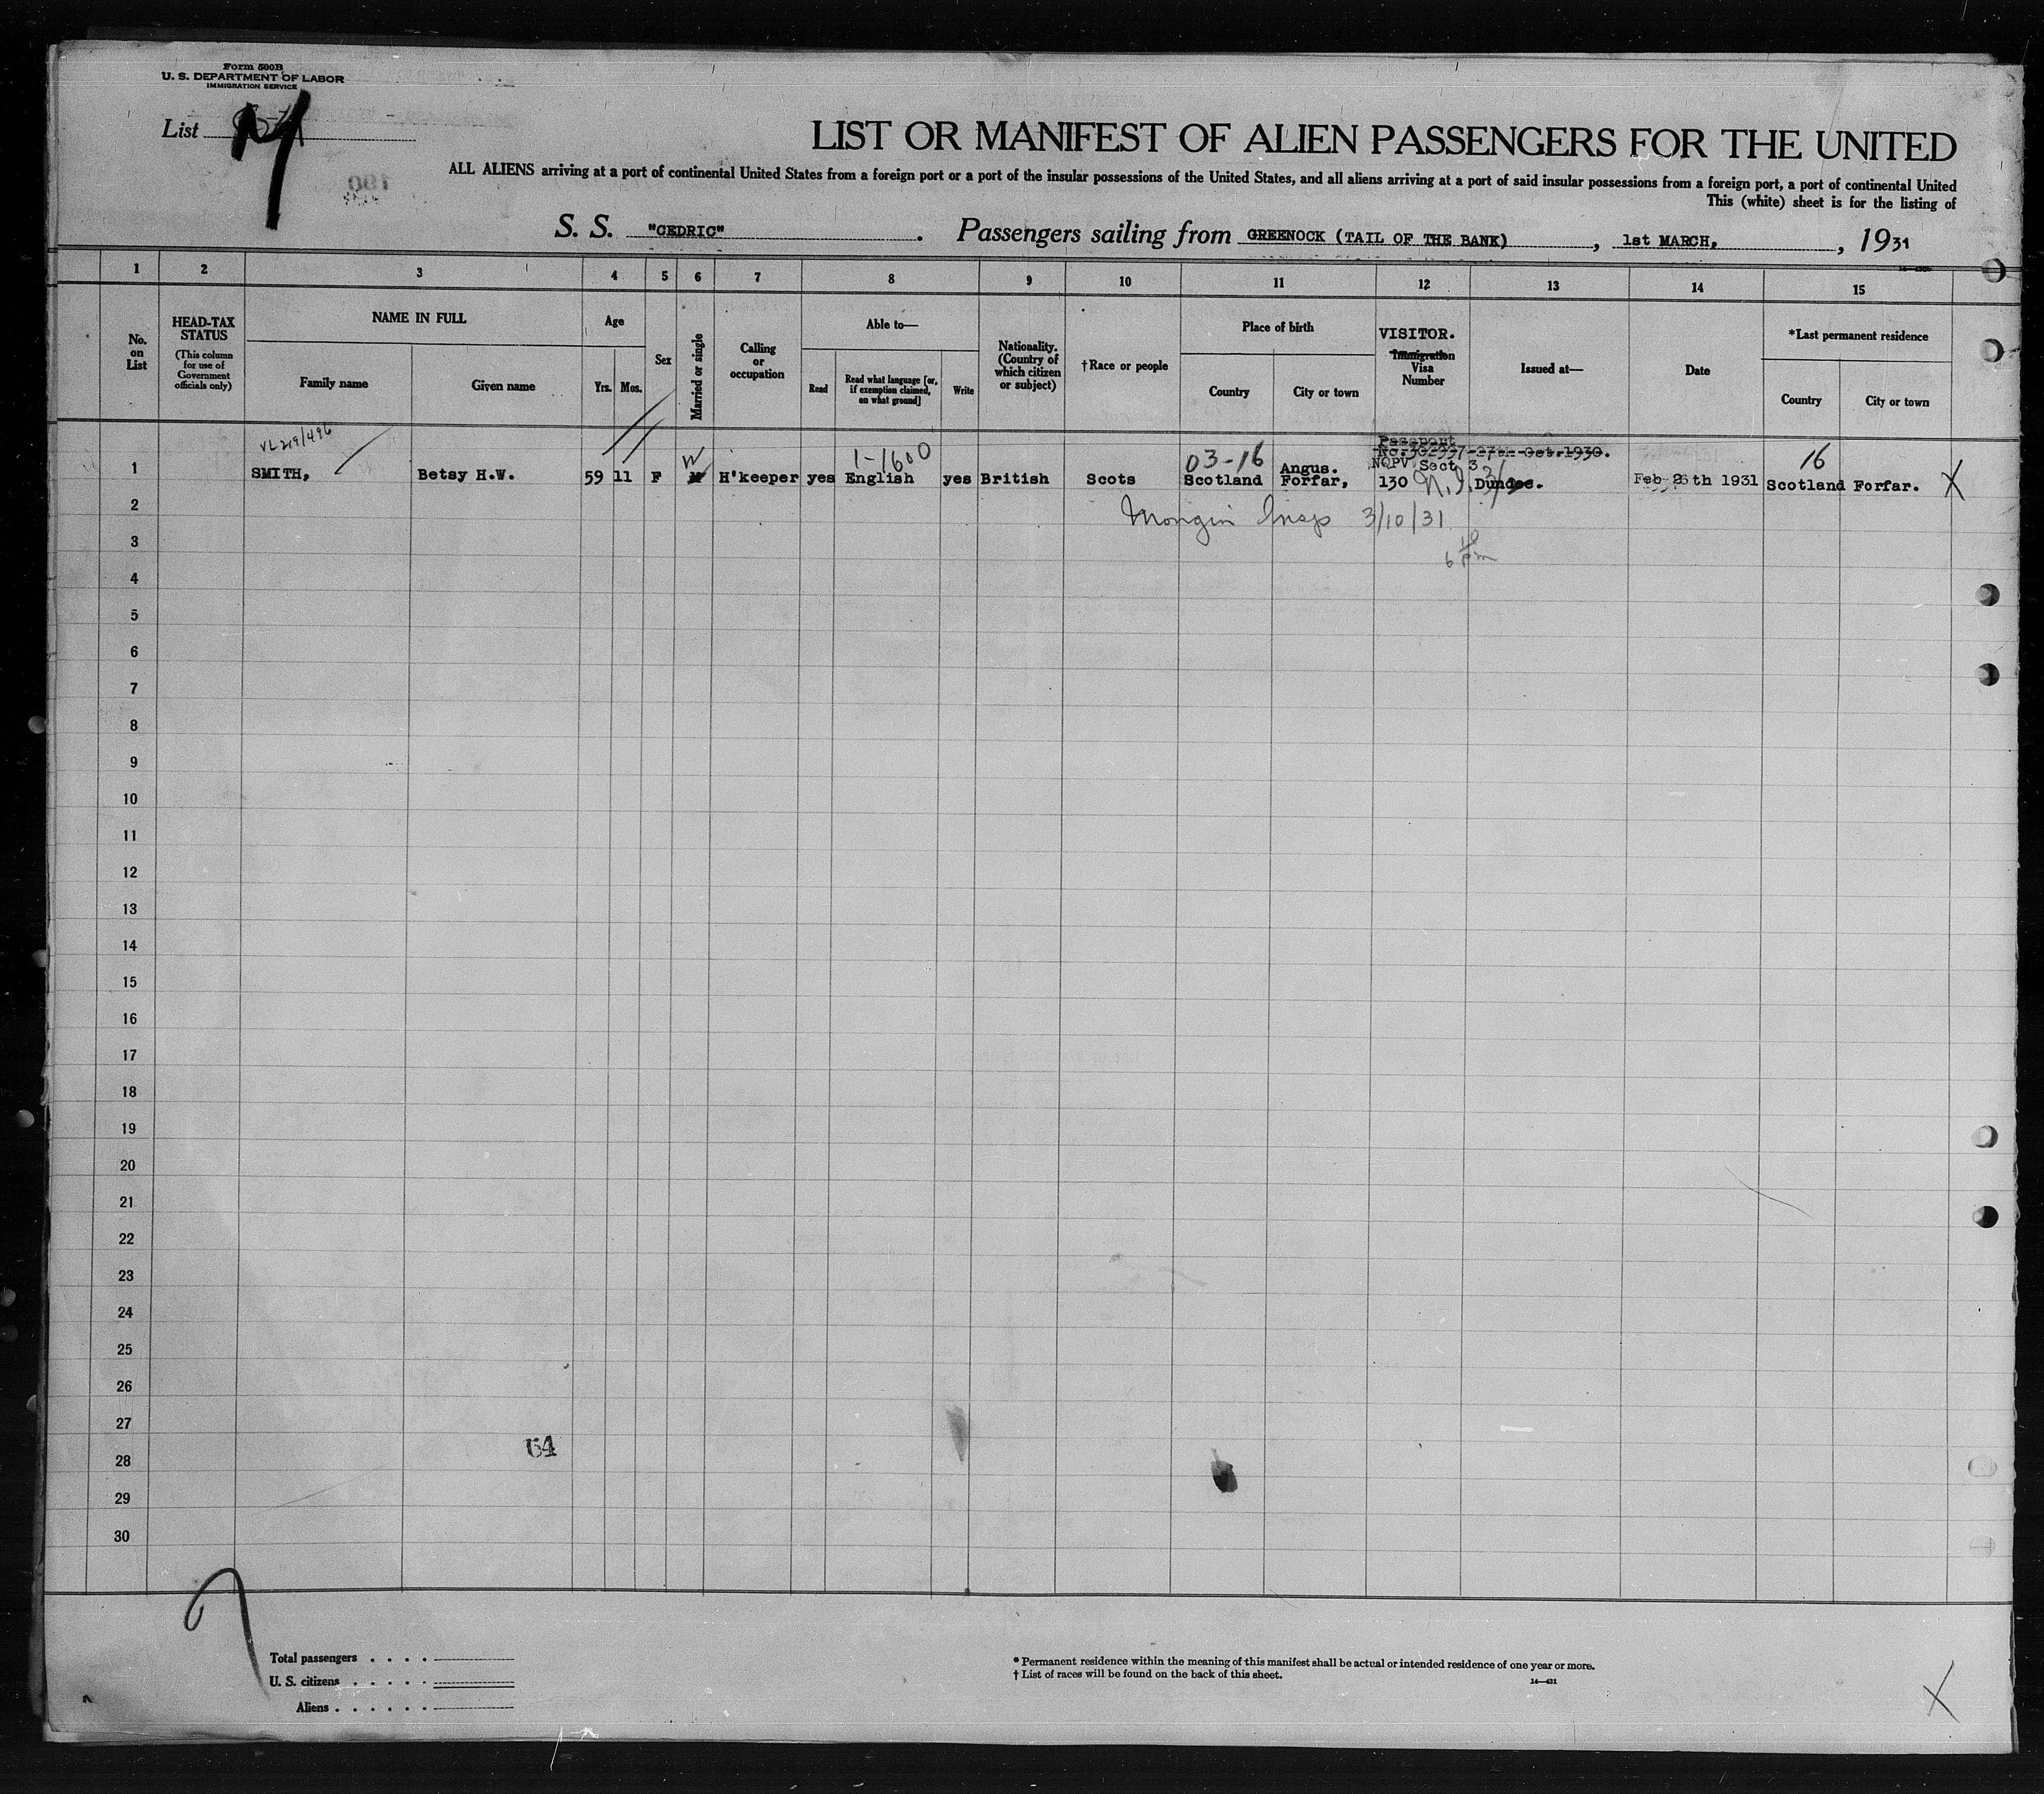 Form 500B
U. S. DEPARTMENT OF LABOR
IMMIGRATION SERVICE
List
LIST OR MANIFEST OF ALIEN PASSENGERS FOR THE UNITED
ALL ALIENS arriving at a port of continental United States from a foreign port or a port of the insular possessions of the United States, and all aliens arriving at a port of said insular possessions from a foreign port, a port of continental United
This (white) sheet is for the listing of
S. S. "CEDRIC". Passengers sailing from GREENOCK (TAIL OF THE BANK), 1st MARCH, , 1931
1 2 3 4 5 6 7 8 9 10 11 12 13 14 15
No. on List
HEAD-TAX STATUS
(This column for use of Government officials only)
NAME IN FULL
Family name
Given name
Age
Yrs.
Mos.
Sex
Married or single
Calling or occupation
Able to—
Read
Read what language [or, if exemption claimed, on what ground]
Write
Nationality. (Country of which citizen or subject)
†Race or people
Place of birth
Country
City or town
VISITOR.
Immigration Visa Number
Issued at—
Date
*Last permanent residence
Country
City or town
VL 219/496
1-1600
03-16
Passport
27th Oct. 1930.
16
NQPV Sect 3
Angus.
1 SMITH, Betsy H.W. 59 11 F W H'keeper yes English yes British Scots Scotland Forfar, 130 Dundee. Feb 26th 1931 Scotland Forfar. X
2 Insp 3/10/31
3
4
5
6
7
8
9
10
11
12
13
14
15
16
17
18
19
20
21
22
23
24
25
26
27
64
28
29
30
Total passengers . . . .
U. S. citizens . . . . .
Aliens . . . . . .
* Permanent residence within the meaning of this manifest shall be actual or intended residence of one year or more.
† List of races will be found on the back of this sheet.
14—431
X